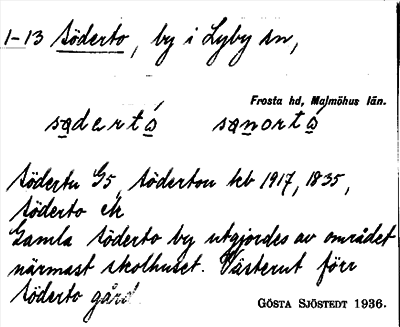 1-13 Söderto, by i Lyby sn,
Frosta hd, Malmöhus län.
sødertå sønortå
Södertu G5, Södertou kb 1917, 1835,
Söderto ek
Gamla Söderto by utgjordes av området
närmast skolhuset. Västerut förr
Söderto gård.
GÖSTA SJÖSTEDT 1936.